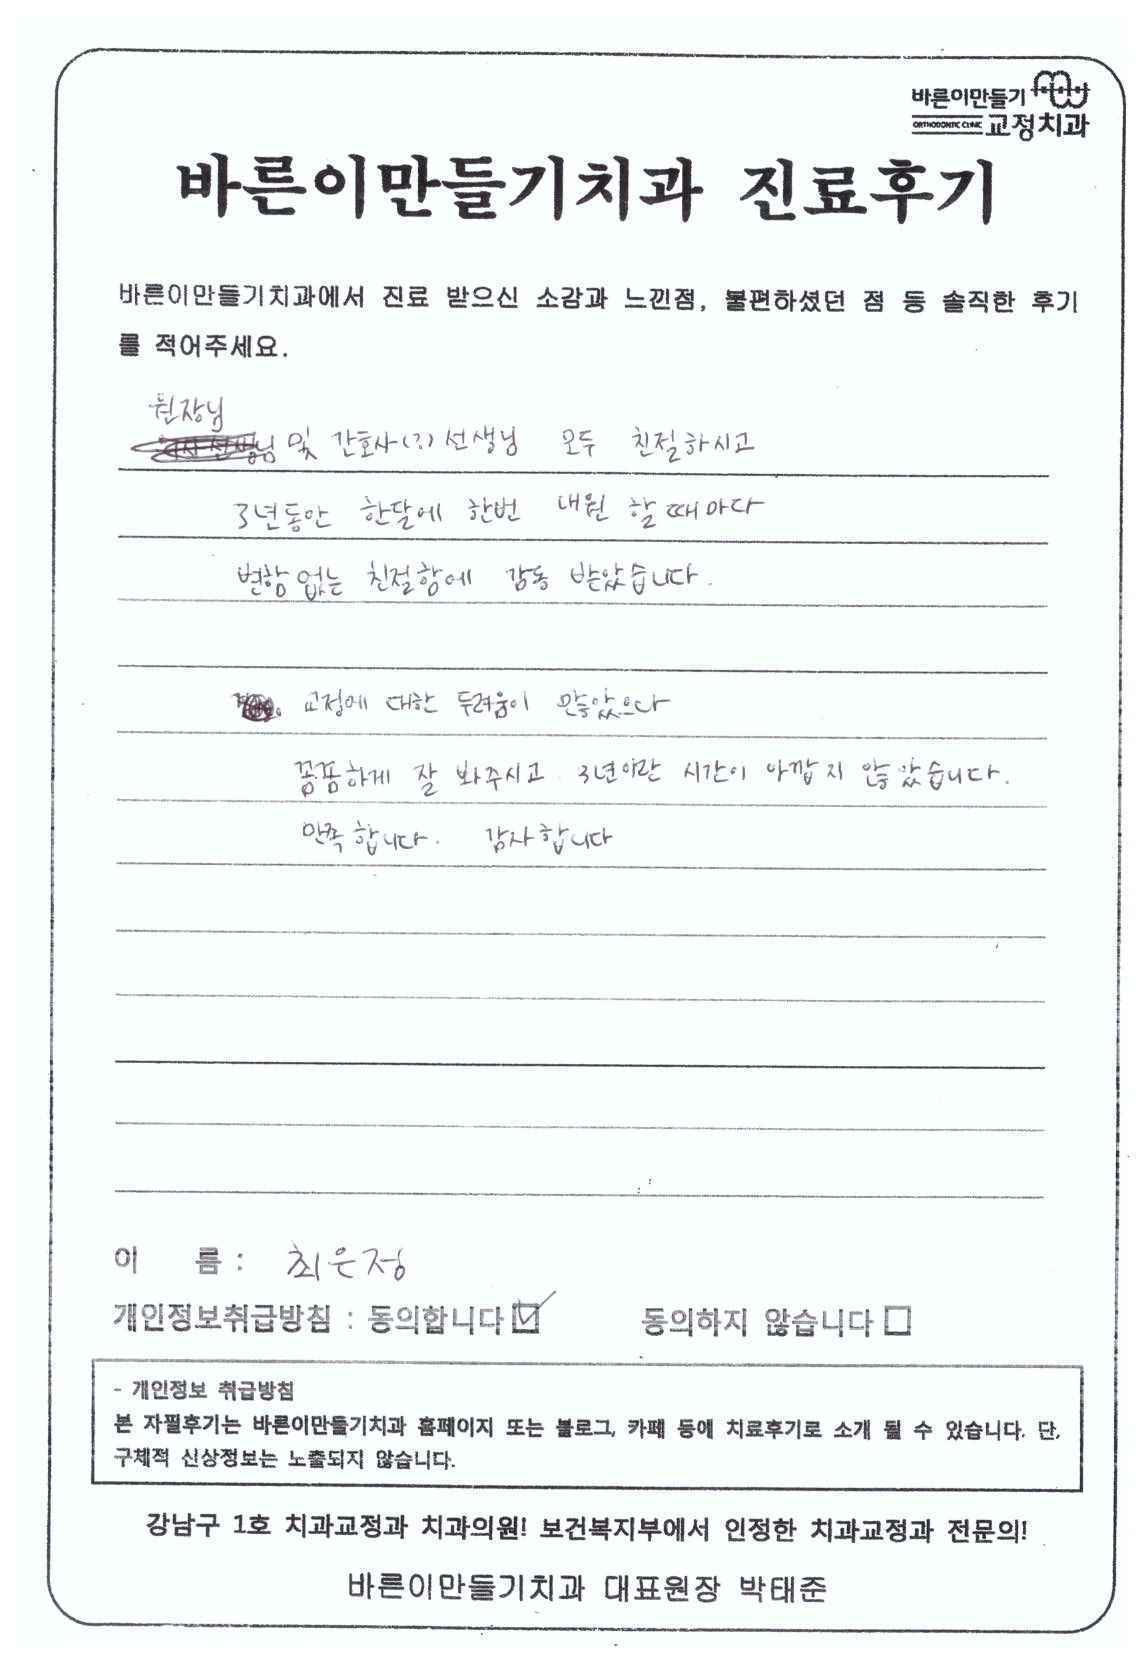 바른이만들기
ORTHODONTIC CLINIC 교정치과
바른이만들기치과 진료후기
바른이만들기치과에서 진료 받으신 소감과 느낀점, 불편하셨던 점 등 솔직한 후기
를 적어주세요.
원장님
및 간호사(?) 선생님 모두 친절하시고
3년동안 한달에 한번 내원 할 때마다
변함 없는 친절함에 감동 받았습니다.
교정에 대한 두려움이 많았으나
꼼꼼하게 잘 봐주시고 3년이란 시간이 아깝지 않았습니다.
만족합니다. 감사합니다
이 름 : 최은정
개인정보취급방침 : 동의합니다 동의하지 않습니다
- 개인정보 취급방침
본 자필후기는 바른이만들기치과 홈페이지 또는 블로그, 카페 등에 치료후기로 소개 될 수 있습니다. 단,
구체적 신상정보는 노출되지 않습니다.
강남구 1호 치과교정과 치과의원! 보건복지부에서 인정한 치과교정과 전문의!
바른이만들기치과 대표원장 박태준